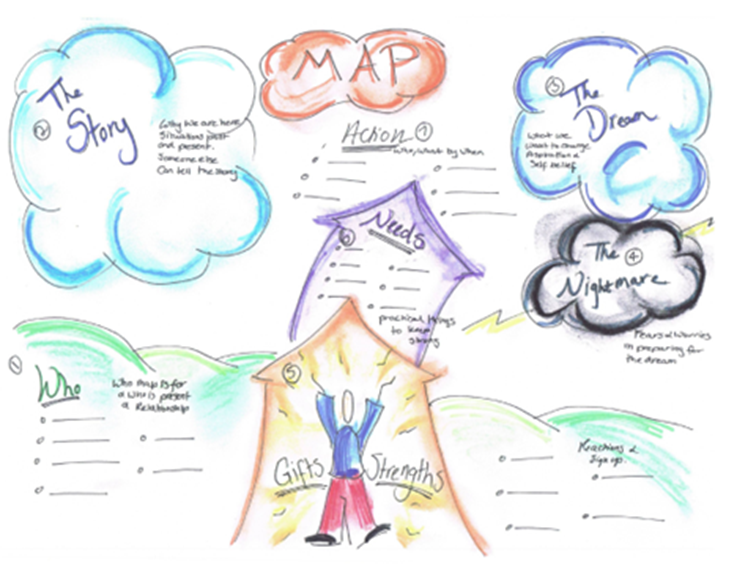 MAP
The
② Story
Why we are here
Situations past
and present.
Someone else
Can tell the story
Action ⑦
Who, What by When
③ The
Dream
What we
Want to change
Self belief
The ④
Nightmare
Fears & Worries
in preparing for
the dream
Needs
⑥
practical things
to keep
strong
①
Who
Who map is for
& who is present
& Relationship
⑤
Gifts Strengths
Reactions &
Sign up.